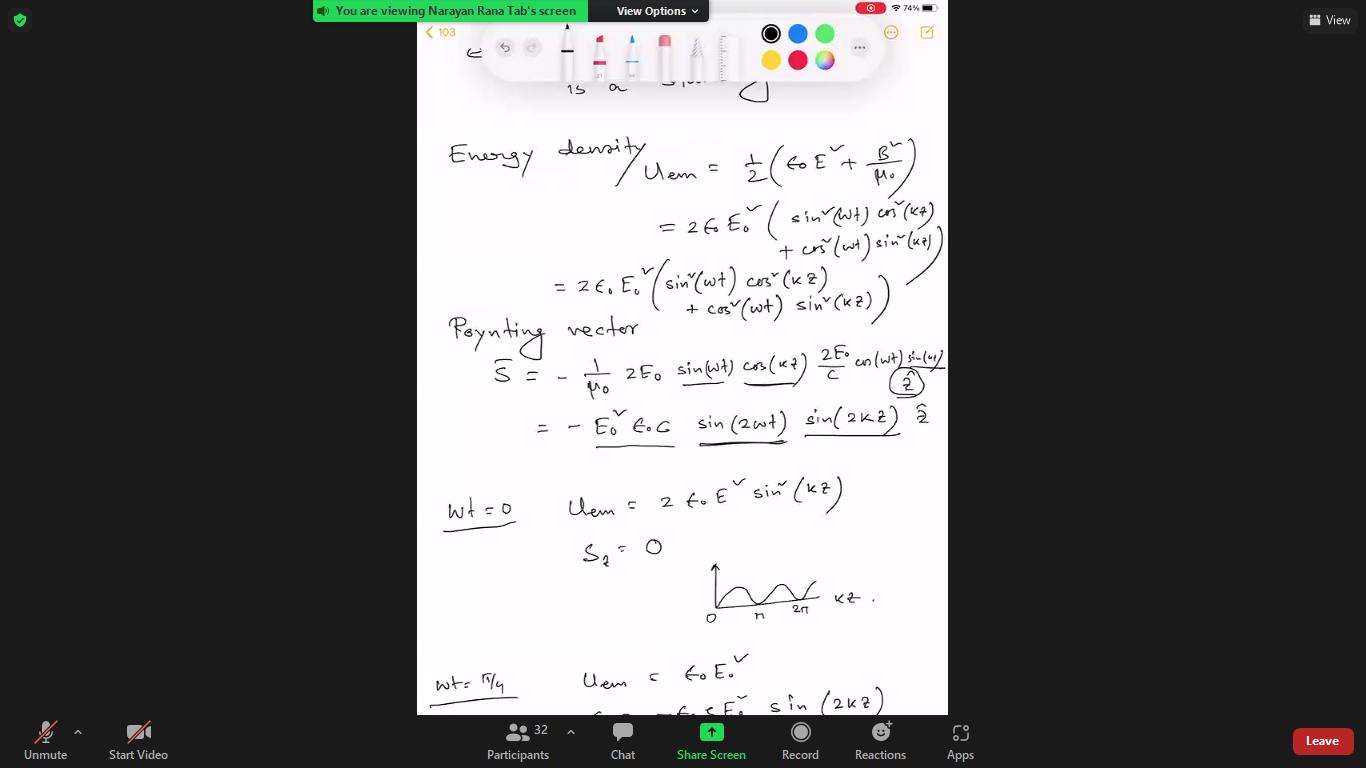 You are viewing Narayan Rana Tab's screen
View Options
74%
View
103
is a
Energy density / Uem = 1/2 (ϵ0 E² + B²/μ0)
= 2 ϵ0 E0² ( sin²(wt) cos²(kz)
+ cos²(wt) sin²(kz) )
= 2 ϵ0 E0² ( sin²(wt) cos²(kz)
+ cos²(wt) sin²(kz) )
Poynting vector
S̄ = - 1/μ0 2E0 sin(wt) cos(kz) 2E0/c cos(wt) sin(wt)
ẑ
= - E0² ϵ0 c sin(2wt) sin(2kz) ẑ
wt = 0 Uem = 2 ϵ0 E² sin²(kz)
Sz = 0
0 π 2π kz .
wt = π/4 Uem = ϵ0 E0²
E0² sin (2kz)
Unmute
Start Video
Participants
32
Chat
Share Screen
Record
Reactions
Apps
Leave